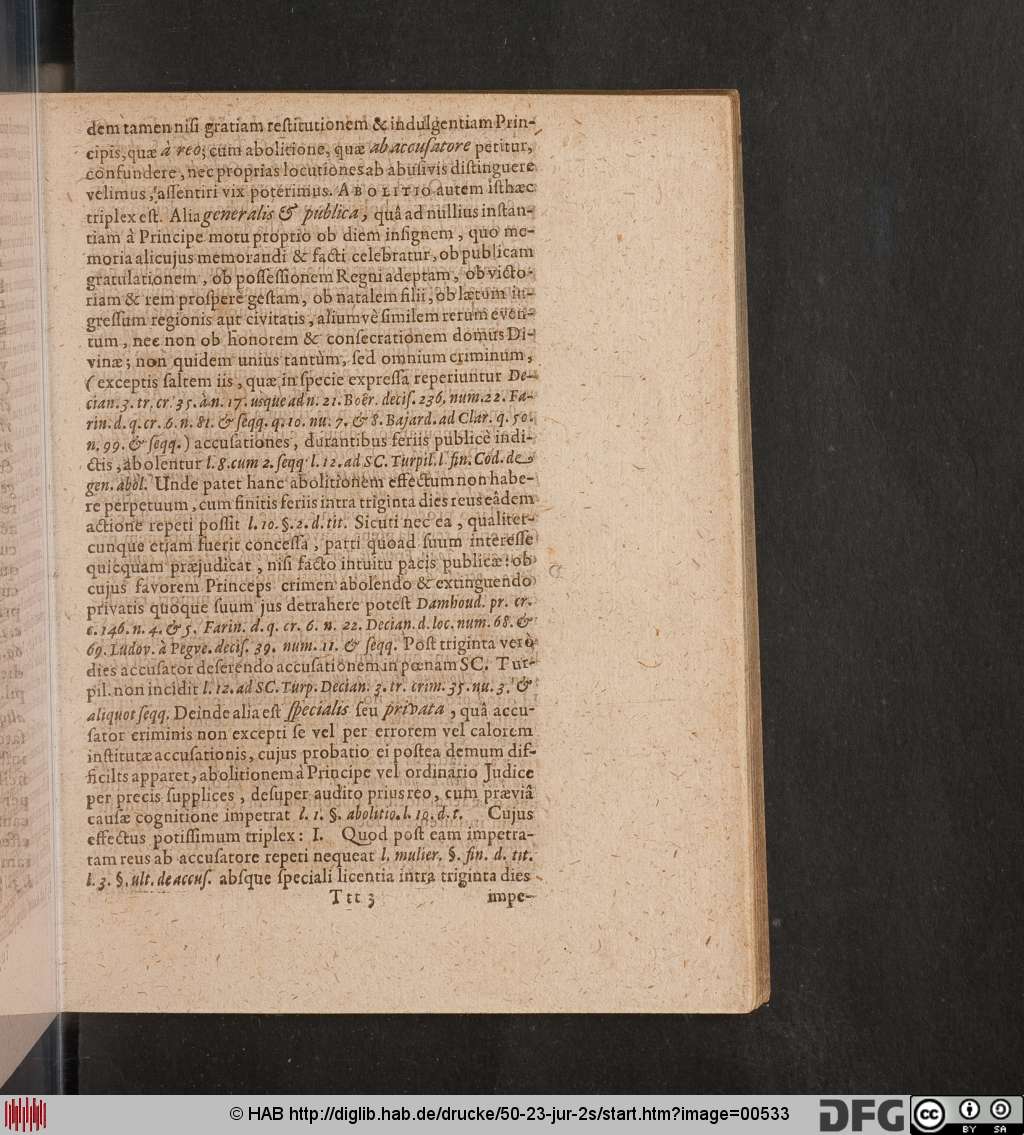 dem tamen niſi gratiam reſtitutionem & indulgentiam Prin-
cipis, quæ à reo; cum abolitione, quæ ab accuſatore petitur,
confundere, nec proprias locutiones ab abuſivis diſtinguere
velimus, aſſentiri vix poterimus. ABOLITIO autem iſthæc
triplex eſt. Alia generalis & publica, quâ ad nullius inſtan-
tiam à Principe motu proptio ob diem inſignem, quo me-
moria alicujus memorandi & facti celebratur, ob publicam
gratulationem, ob poſſeſſionem Regni adeptam, ob victo-
riam & rem proſperè geſtam, ob natalem filii, ob lætum in-
greſſum regionis aut civitatis, aliumvè ſimilem rerum even-
tum, nec non ob honorem & conſecrationem domus Di-
vinæ; non quidem unius tantùm, ſed omnium criminum,
(exceptis ſaltem iis, quæ in ſpecie expreſſa reperiuntur De-
cian. 3. tr. cr. 35. à n. 17. usque ad n. 21. Boër. deciſ. 236. num. 22. Fa-
rin. d. q. cr. 6. n. 81. & ſeqq. q. 10. nu. 7. & 8. Bajard. ad Clar. q. 50.
n. 99. & ſeqq.) accuſationes, durantibus feriis publicè indi-
ctis, abolentur l. 8. cum 2. ſeqq. l. 12. ad SC. Turpil. l. fin. Cod. de
gen. abol. Unde patet hanc abolitionem effectum non habe-
re perpetuum, cum finitis feriis intra triginta dies reus eâdem
actione repeti poſſit l. 10. §. 2. d. tit. Sicuti nec ea, qualiter-
cunque etiam fuerit conceſſa, parti quoad ſuum intereſſe
quicquam præjudicat, niſi facto intuitu pacis publicæ: ob
cujus favorem Princeps crimen abolendo & extinguendo
privatis quoque ſuum jus detrahere poteſt Damhoud. pr. cr.
c. 146. n. 4. & 5. Farin. d. q. cr. 6. n. 22. Decian. d. loc. num. 68. &
69. Ludov. à Pegve. deciſ. 39. num. 11. & ſeqq. Poſt triginta verò
dies accuſator deſerendo accuſationem in pœnam SC. Tur-
pil. non incidit l. 12. ad SC. Turp. Decian. 3. tr. crim. 35. nu. 3. &
aliquot ſeqq. Deinde alia eſt ſpecialis ſeu privata, quâ accu-
ſator criminis non excepti ſe vel per errorem vel calorem
inſtitutæ accuſationis, cujus probatio ei poſtea demum dif-
ficilis apparet, abolitionem à Principe vel ordinario Judice
per precis ſupplices, deſuper audito prius reo, cum præviâ
cauſæ cognitione impetrat l. 1. §. abolitio. l. 10. d. t. Cujus
effectus potiſſimum triplex: I. Quod poſt eam impetra-
tam reus ab accuſatore repeti nequeat l. mulier. §. fin. d. tit.
l. 3. §. ult. de accuſ. absque ſpeciali licentia intra triginta dies
Ttt 3 impe-
© HAB http://diglib.hab.de/drucke/50-23-jur-2s/start.htm?image=00533
DFG
cc BY SA